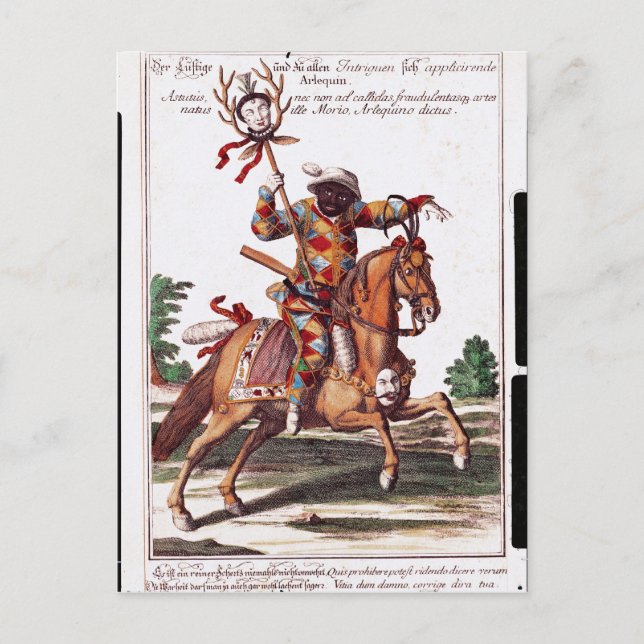 Der Lustige und zu allen Intriguen sich applicirende
Arlequin.
Astutus, nec non ad callidas, fraudulentasq, artes
natus ille Morio, Arlequino dictus.
Es ist ein reiner Schertz niemahls nicht verwehrt Quis prohibere potest ridendo dicere verum
Die Warheit darf man ja auch gar wohl lachent sagen Vitia dum damno, corrige dira tua.